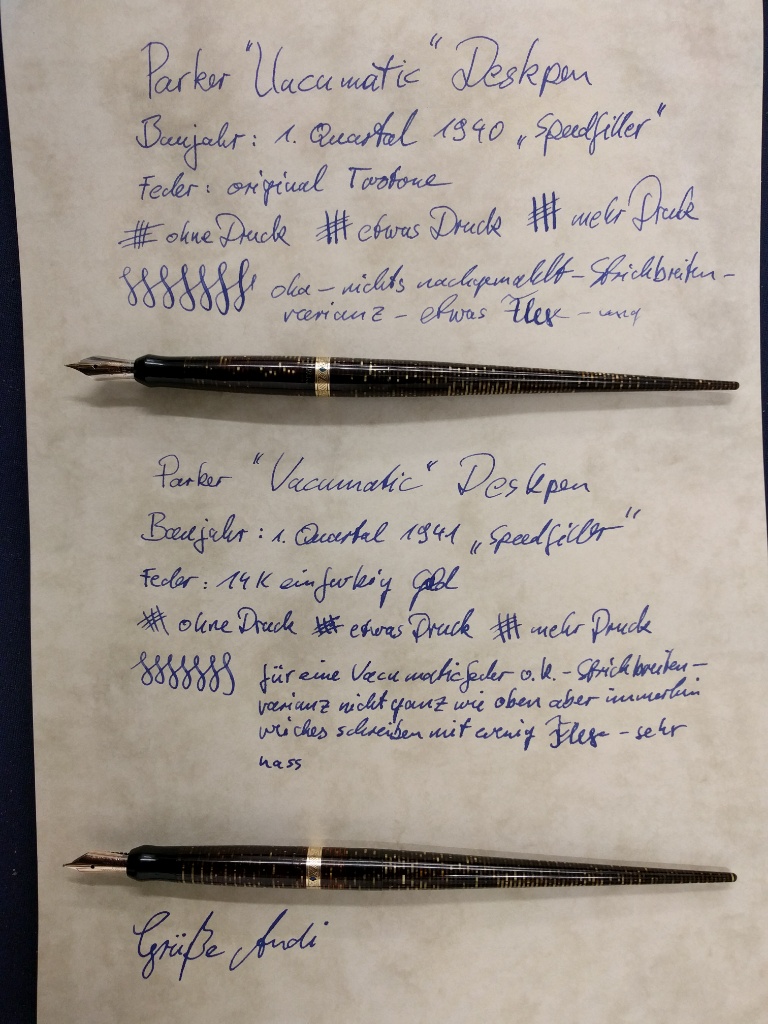 Parker "Vacumatic" Deskpen
Baujahr: 1. Quartal 1940 „Speedfiller"
Feder: original Twotone
ohne Druck etwas Druck mehr Druck
oha – nichts nachgemahlt – Strichbreiten-
varianz – etwas Flex –
Parker "Vacumatic" Deskpen
Baujahr: 1. Quartal 1941 „Speedfiller"
Feder: 14K einfarbig Gold
ohne Druck etwas Druck mehr Druck
für eine Vacumaticfeder o.k. – Strichbreiten-
varianz nicht ganz wie oben aber immerhin
weiches schreiben mit wenig Flex – sehr
nass
Grüße Andi